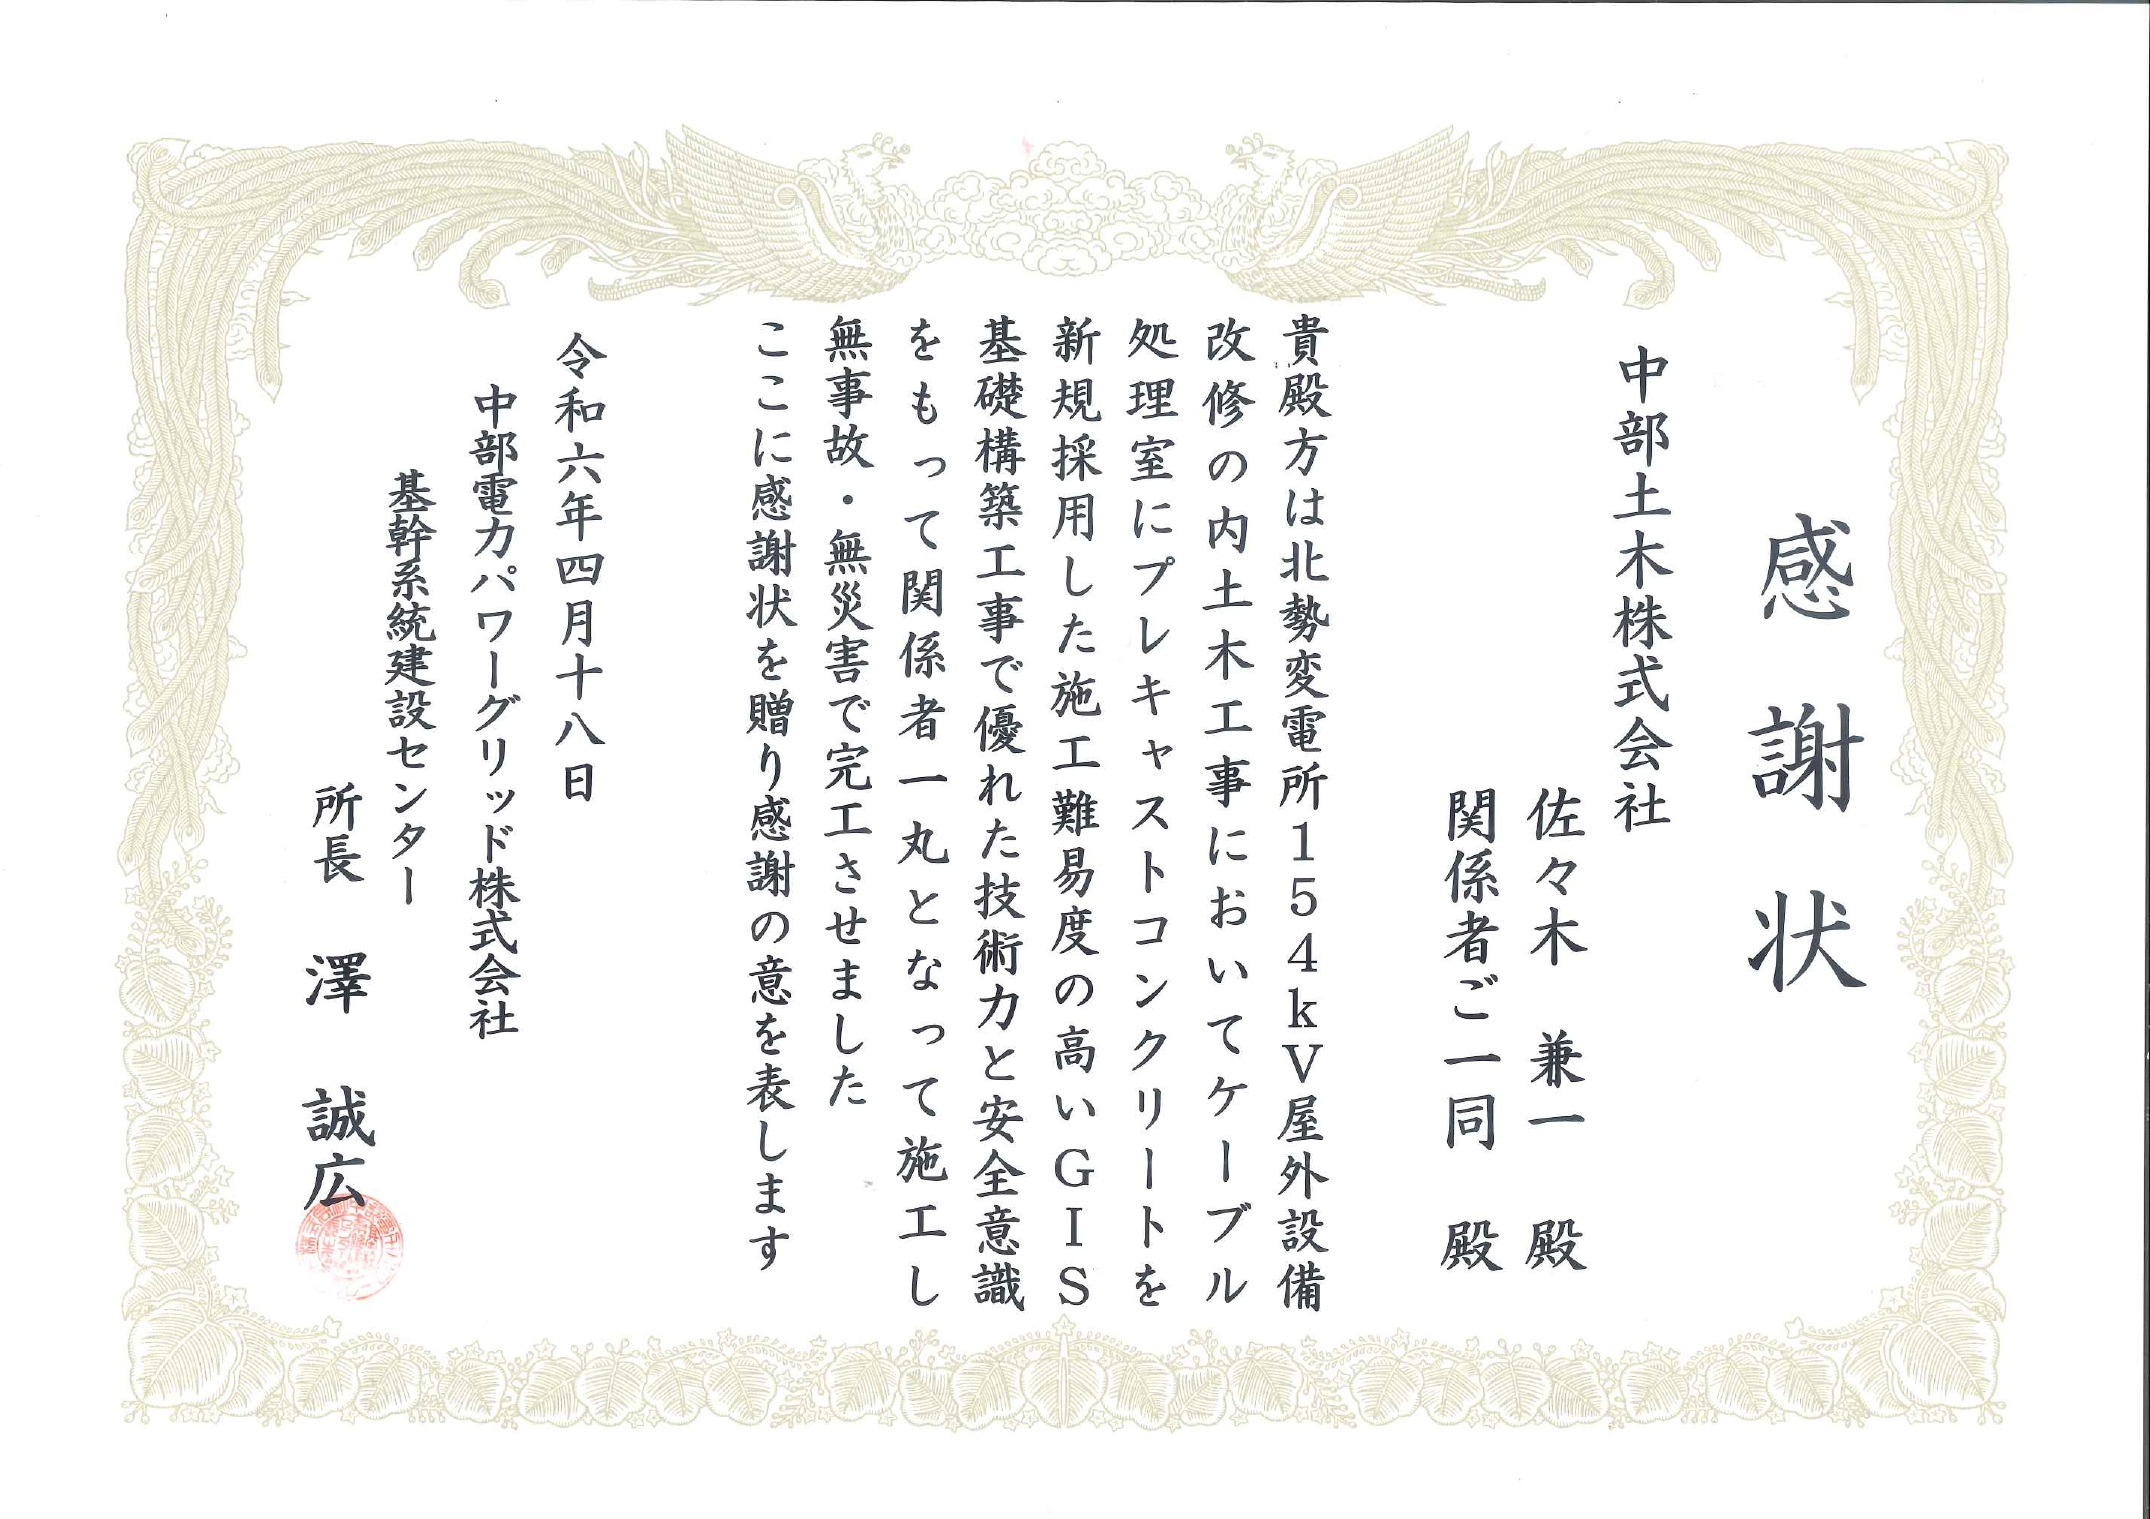 感謝状
中部土木株式会社
佐々木 兼一 殿
関係者ご一同 殿
貴殿方は北勢変電所154kV屋外設備
改修の内土木工事においてケーブル
処理室にプレキャストコンクリートを
新規採用した施工難易度の高いGIS
基礎構築工事で優れた技術力と安全意識
をもって関係者一丸となって施工し
無事故・無災害で完工させました
ここに感謝状を贈り感謝の意を表します
令和六年四月十八日
中部電力パワーグリッド株式会社
基幹系統建設センター
所長 澤 誠広